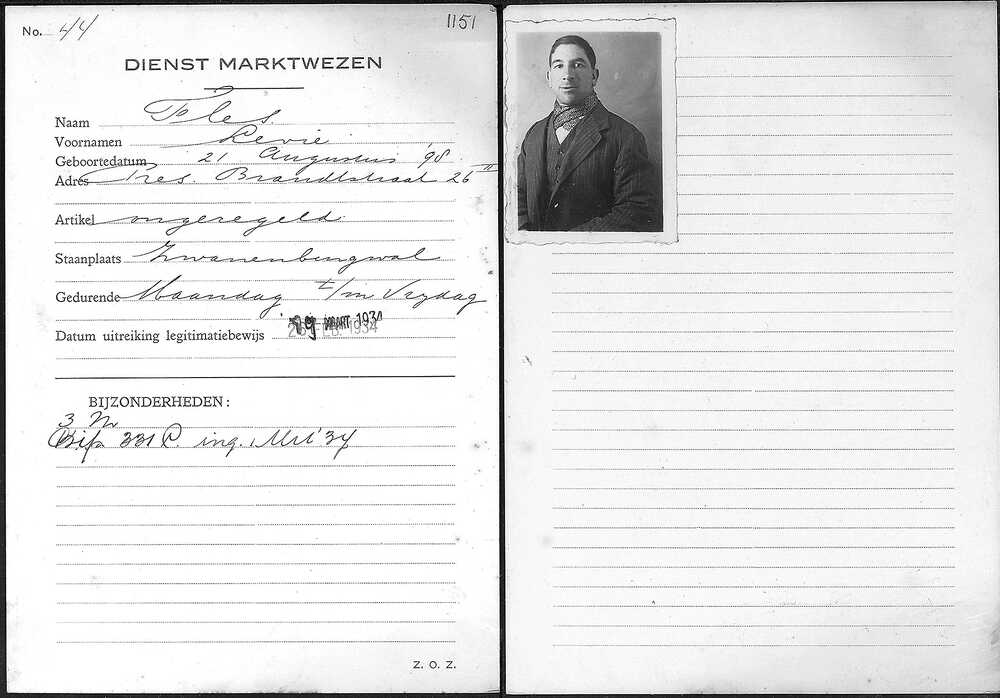 No. 44
1151
DIENST MARKTWEZEN
Naam Fles
Voornamen Levie
Geboortedatum 21 Augustus '98
Adres Pres. Brandtstraat 26 II
Artikel ongeregeld
Staanplaats Zwanenburgwal
Gedurende Maandag t/m Vrydag
Datum uitreiking legitimatiebewijs 19 MAART 1934
BIJZONDERHEDEN:
3 M
331 P. ing. Mrt '34
Z. O. Z.